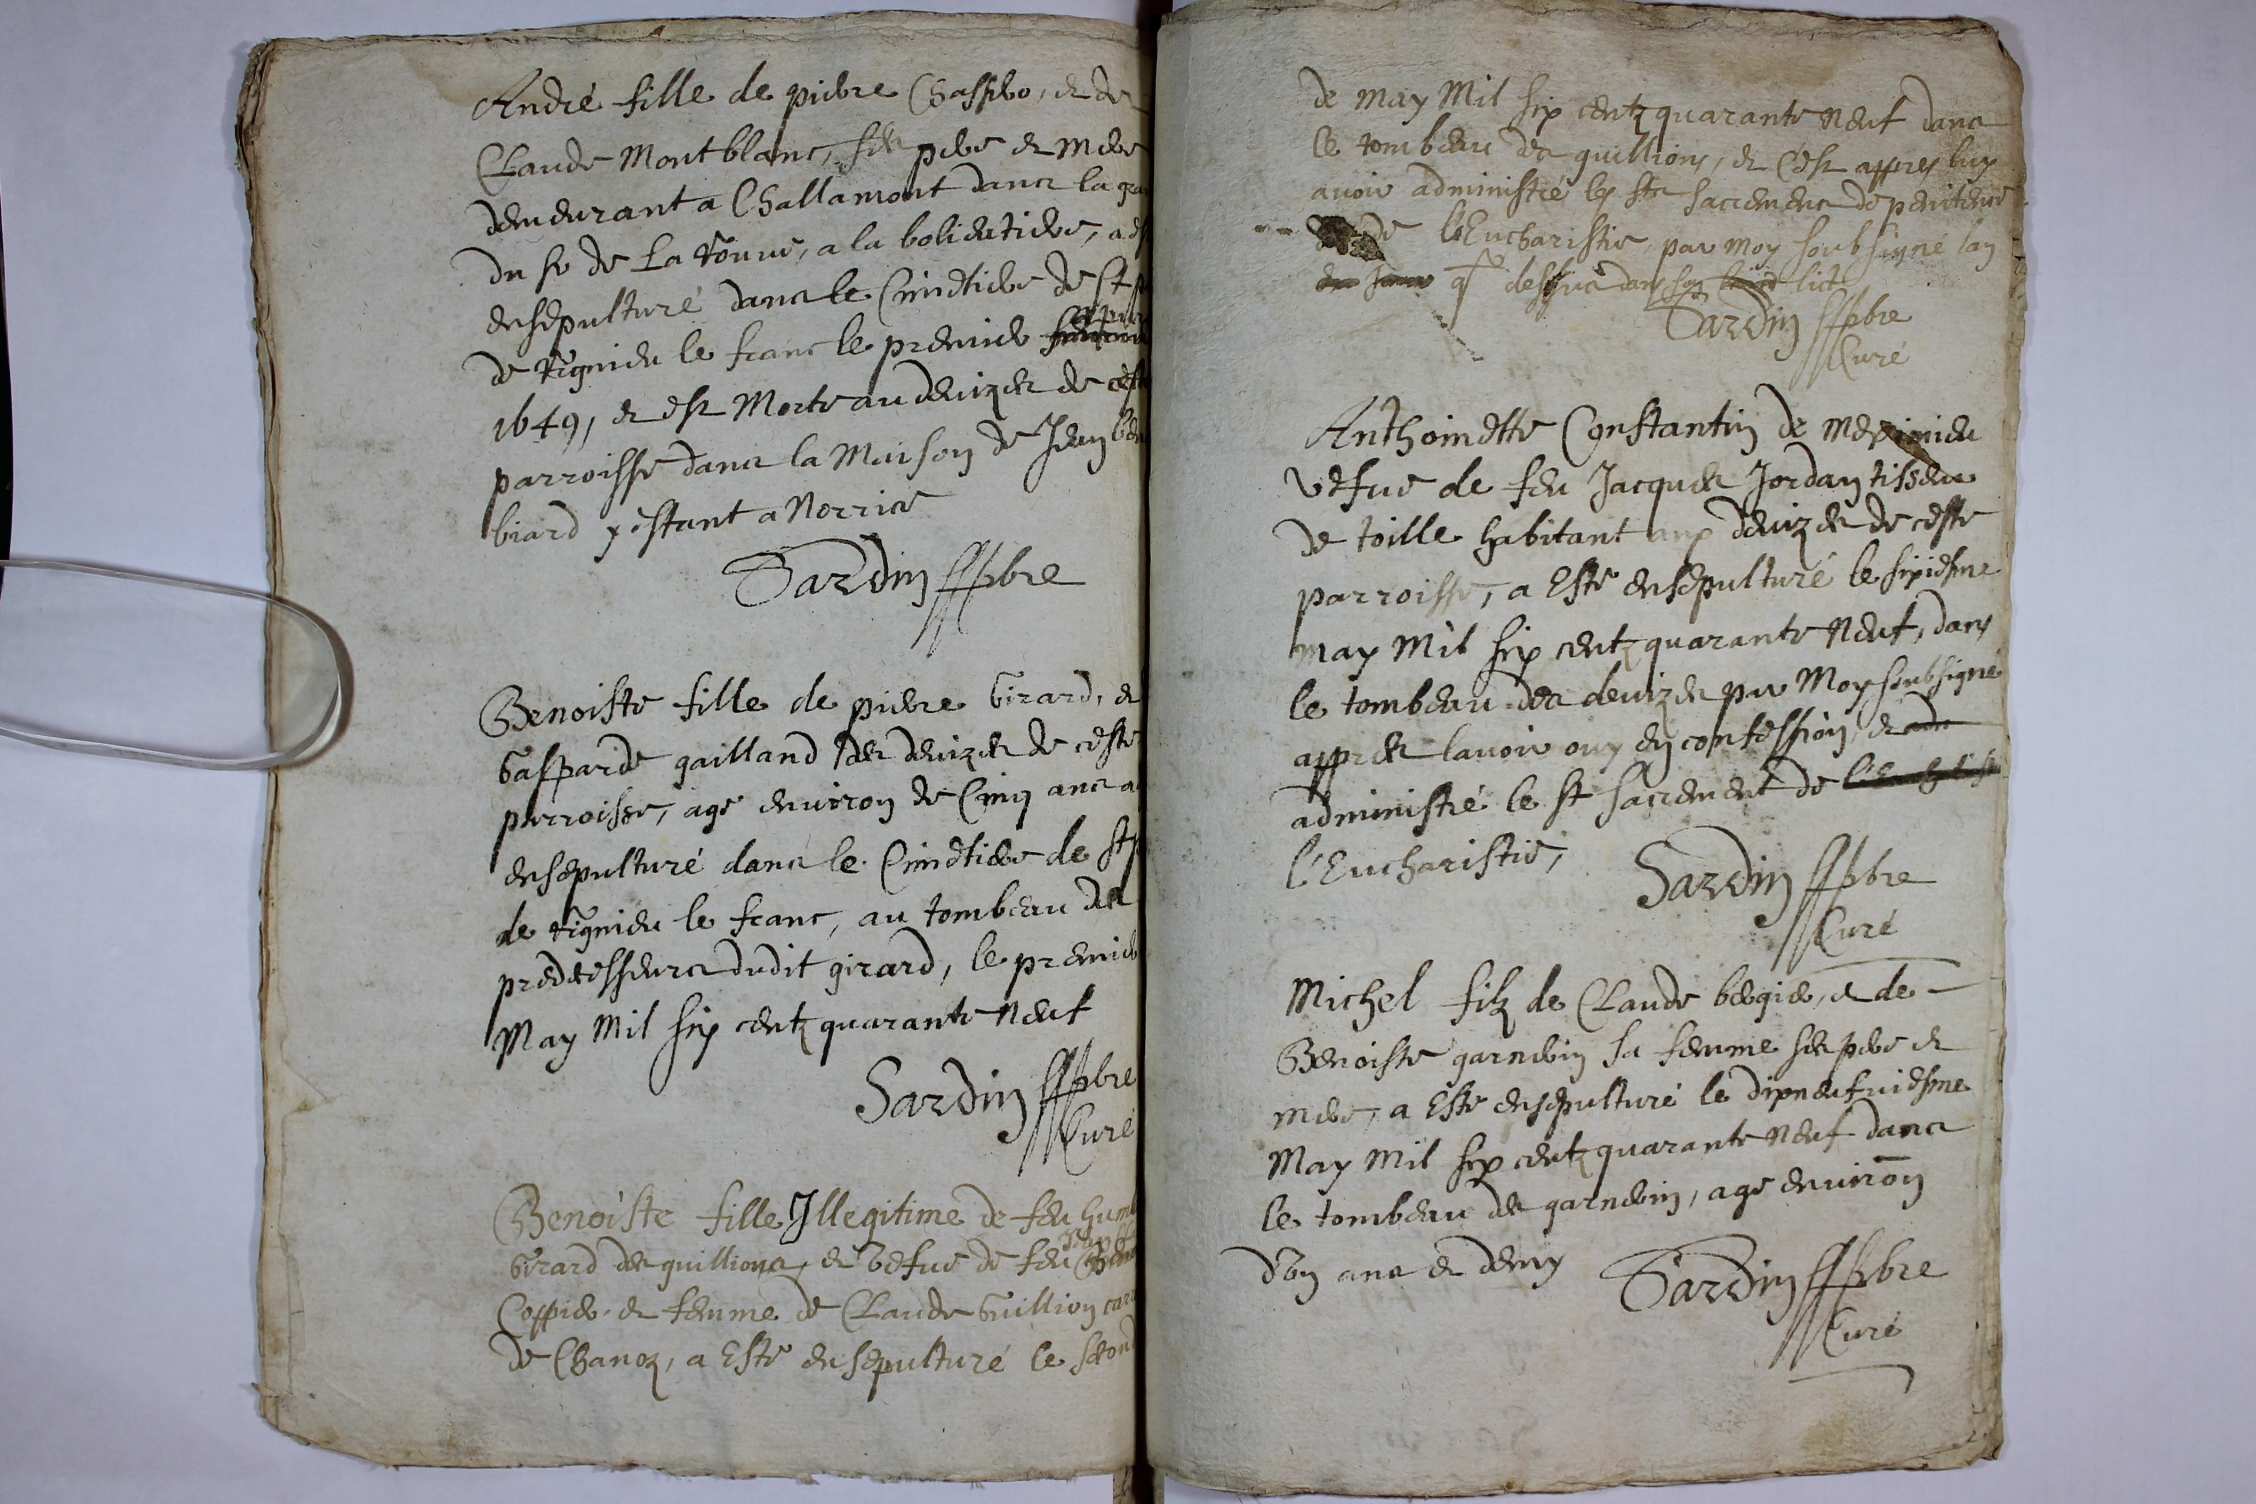 André fille de pierre Chasseo, et de
Claude Montblanc, ses pere et mere
demeurant a Challamont dans la
du sr de La a la a
ensepulturé dans le Cimetiere de St
de Rignieu le franc le premier
1649, et est Morte au devizes de ceste
parroisse dans la Maison de Jean
biard y estant a Norrice
Sardin pbre
Benoiste fille de pierre Girard, et
Gasparde gailland des devizes de ceste
parroisse, age environ de Cinq ans a
ensepulturé dans le Cimetiere de St
de Rignieu le franc, au tombeau des
predecesseurs dudit girard, le premier
May Mil six centz quarante Neuf
Sardin pbre
Curé
Benoiste fille Illegitime de feu
Girard des guillions, et vefue de feu
Coppier et femme de Claude Guillion
de Chanoz, a Esté ensepulturé le second
de May Mil six centz quarante Neuf dans
le tombeau des guillions, et C'est appres luy
avoir administré les sts sacremens de penitence
de l'Eucharistie, par Moy soubsigné lan
dessus dans son lict
Sardin pbre
Curé
Anthoinette Constantin de meximieu
vefue de feu Jacques Jordan tisseur
de toille habitant aux devizes de ceste
parroisse, a Esté ensepulturé le sixiesme
may Mil six centz quarante Neuf, dans
le tombeau des devizes par Moy soubsigné
appres lavoir ouy en confession, et
administré le st sacrement de
l'Eucharistie,
Sardin pbre
Curé
Michel filz de Claude bergier, et de
Benoiste garnerin sa femme ses pere et
mere, a Esté ensepulturé le dixneufuiesme
May Mil six centz quarante Neuf dans
le tombeau des garnerin, age environ
d'un ans et demy
Sardin pbre
Curé